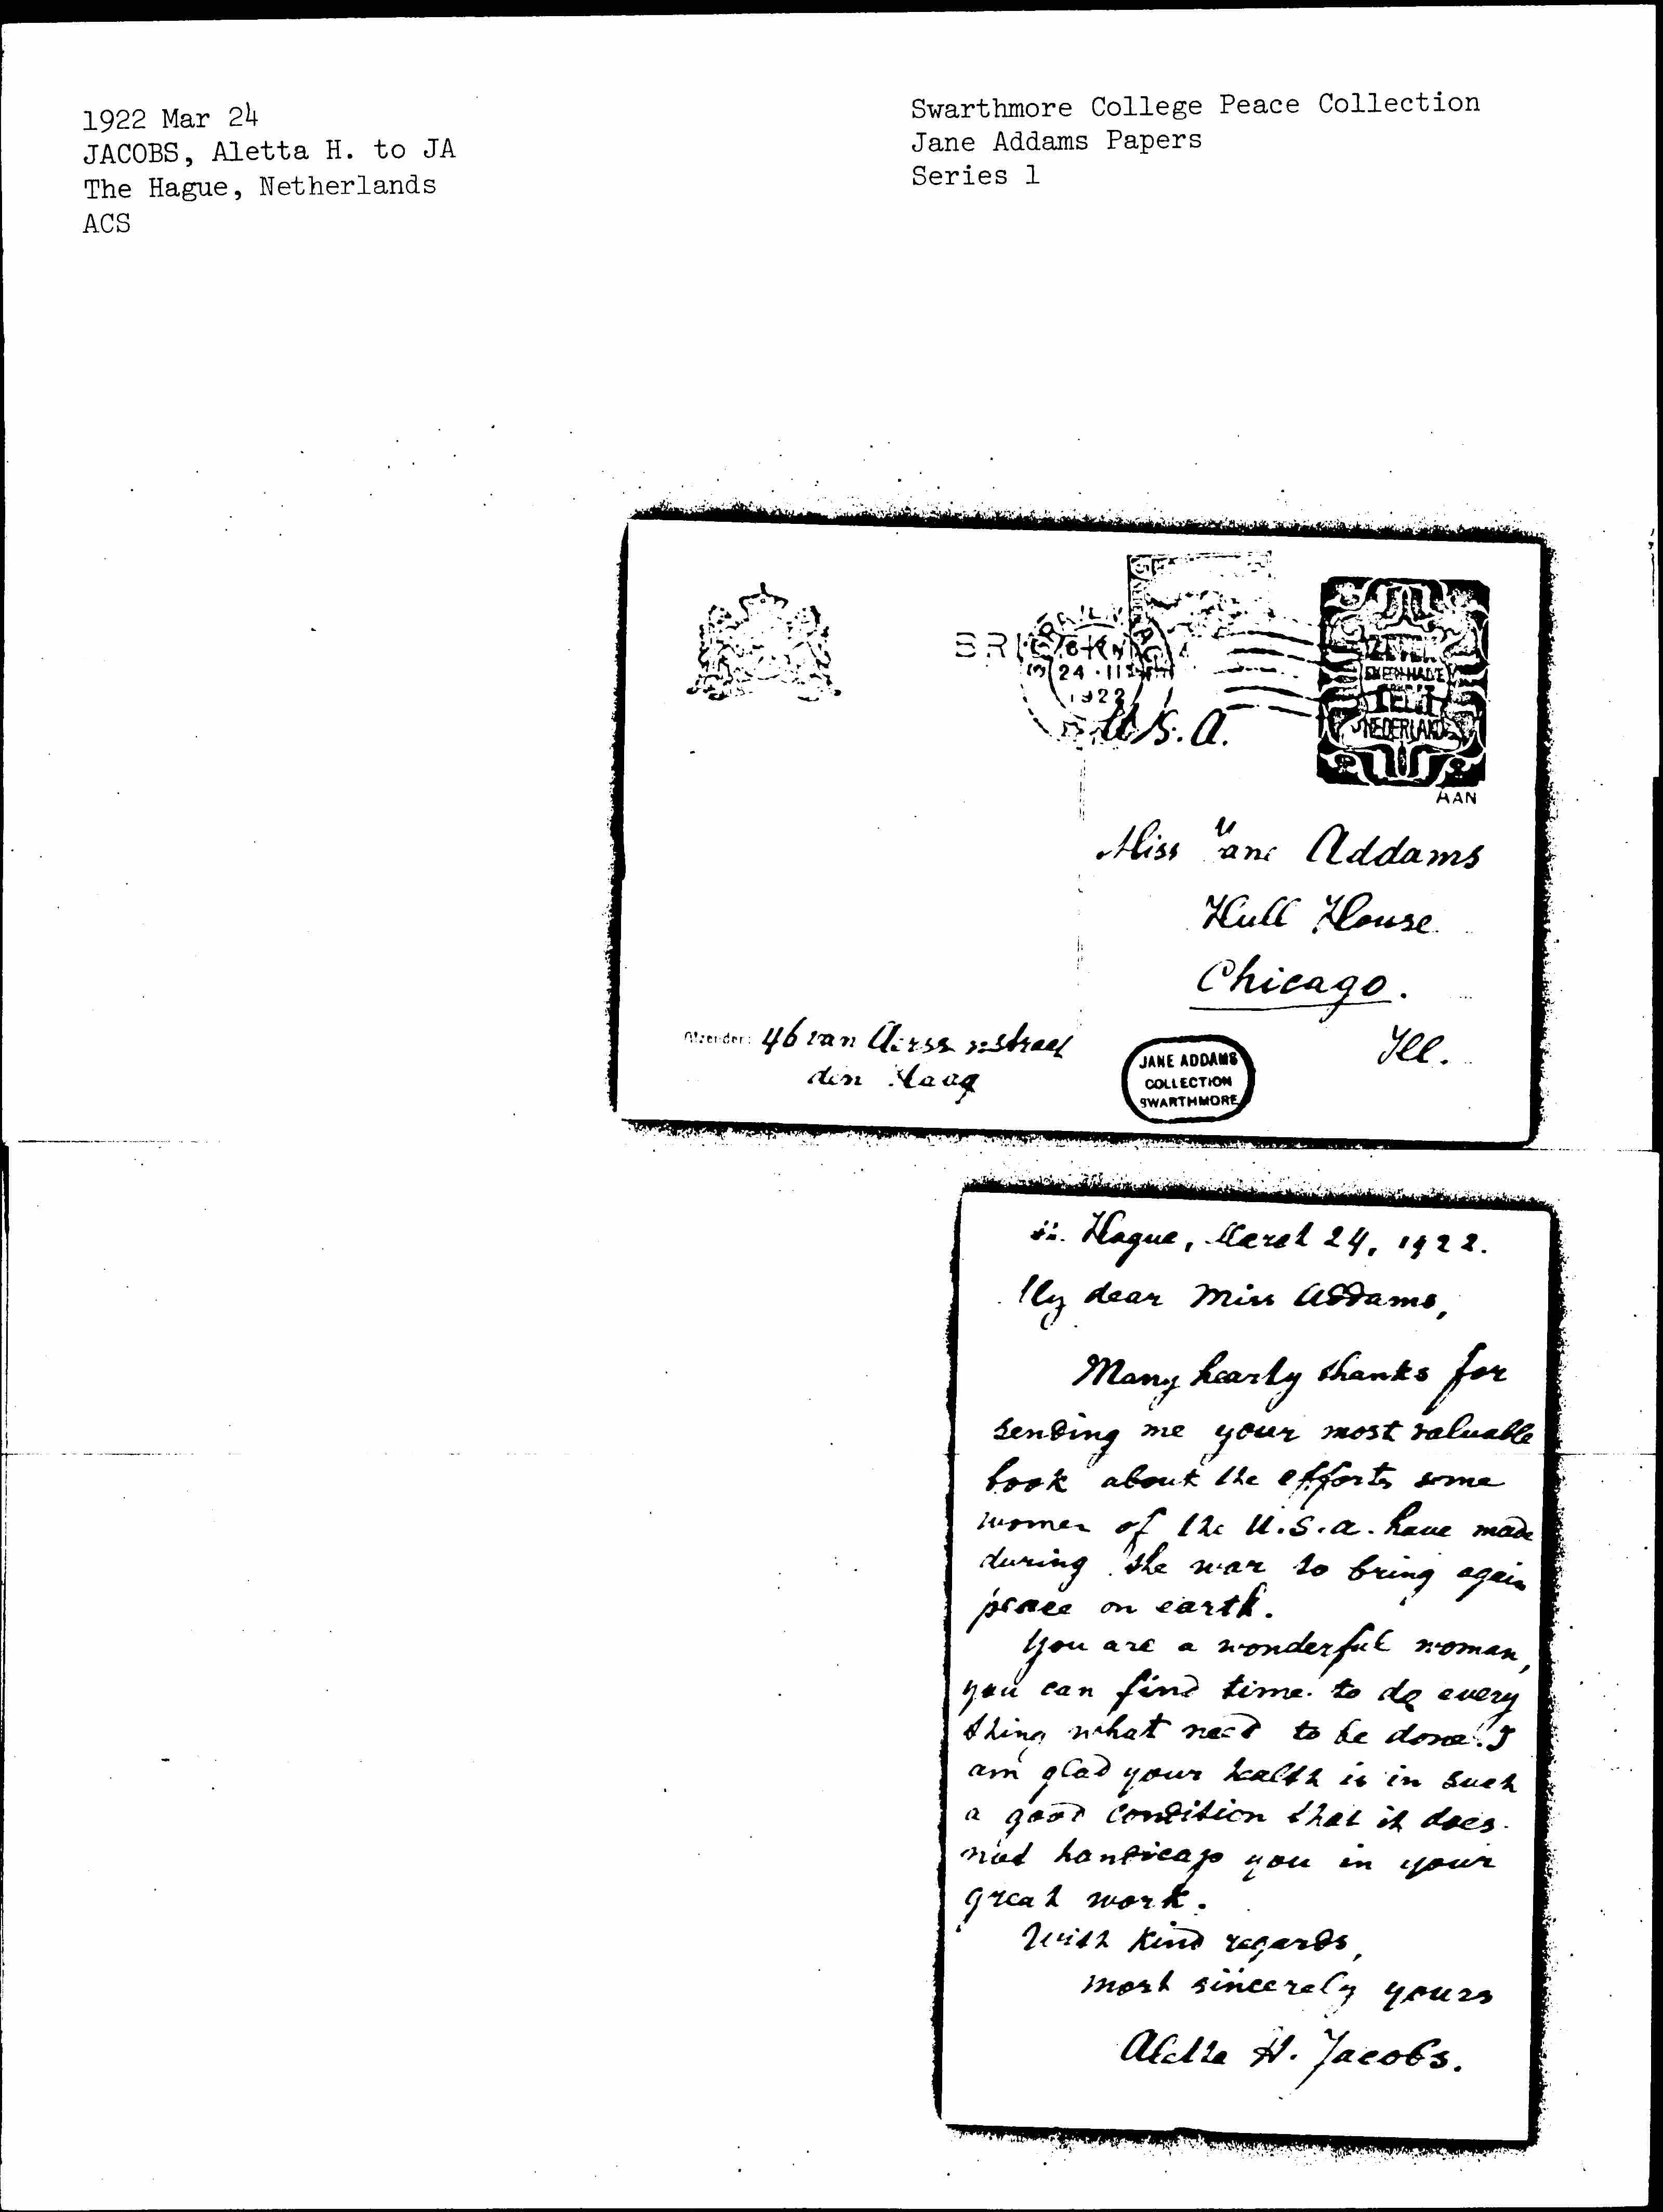 1922 Mar 24
JACOBS, Aletta H. to JA
The Hague, Netherlands
ACS
Swarthmore College Peace Collection
Jane Addams Papers
Series 1
24 · III
1922
U.S.A.
NEDERLAND
AAN
Miss Jane Addams
Hull House
Chicago.
Ill.
Afzender: 46 van Aerssenstraat
den Haag
JANE ADDAMS
COLLECTION
SWARTHMORE
Hague, March 24, 1922.
My dear Miss Addams,
Many hearty thanks for
sending me your most valuable
book about the efforts some
women of the U.S.A. have made
during the war to bring again
peace on earth.
You are a wonderful woman,
you can find time to do every
thing what need to be done. I
am glad your health is in such
a good condition that it does
not handicap you in your
great work.
With kind regards,
most sincerely yours
Aletta H. Jacobs.